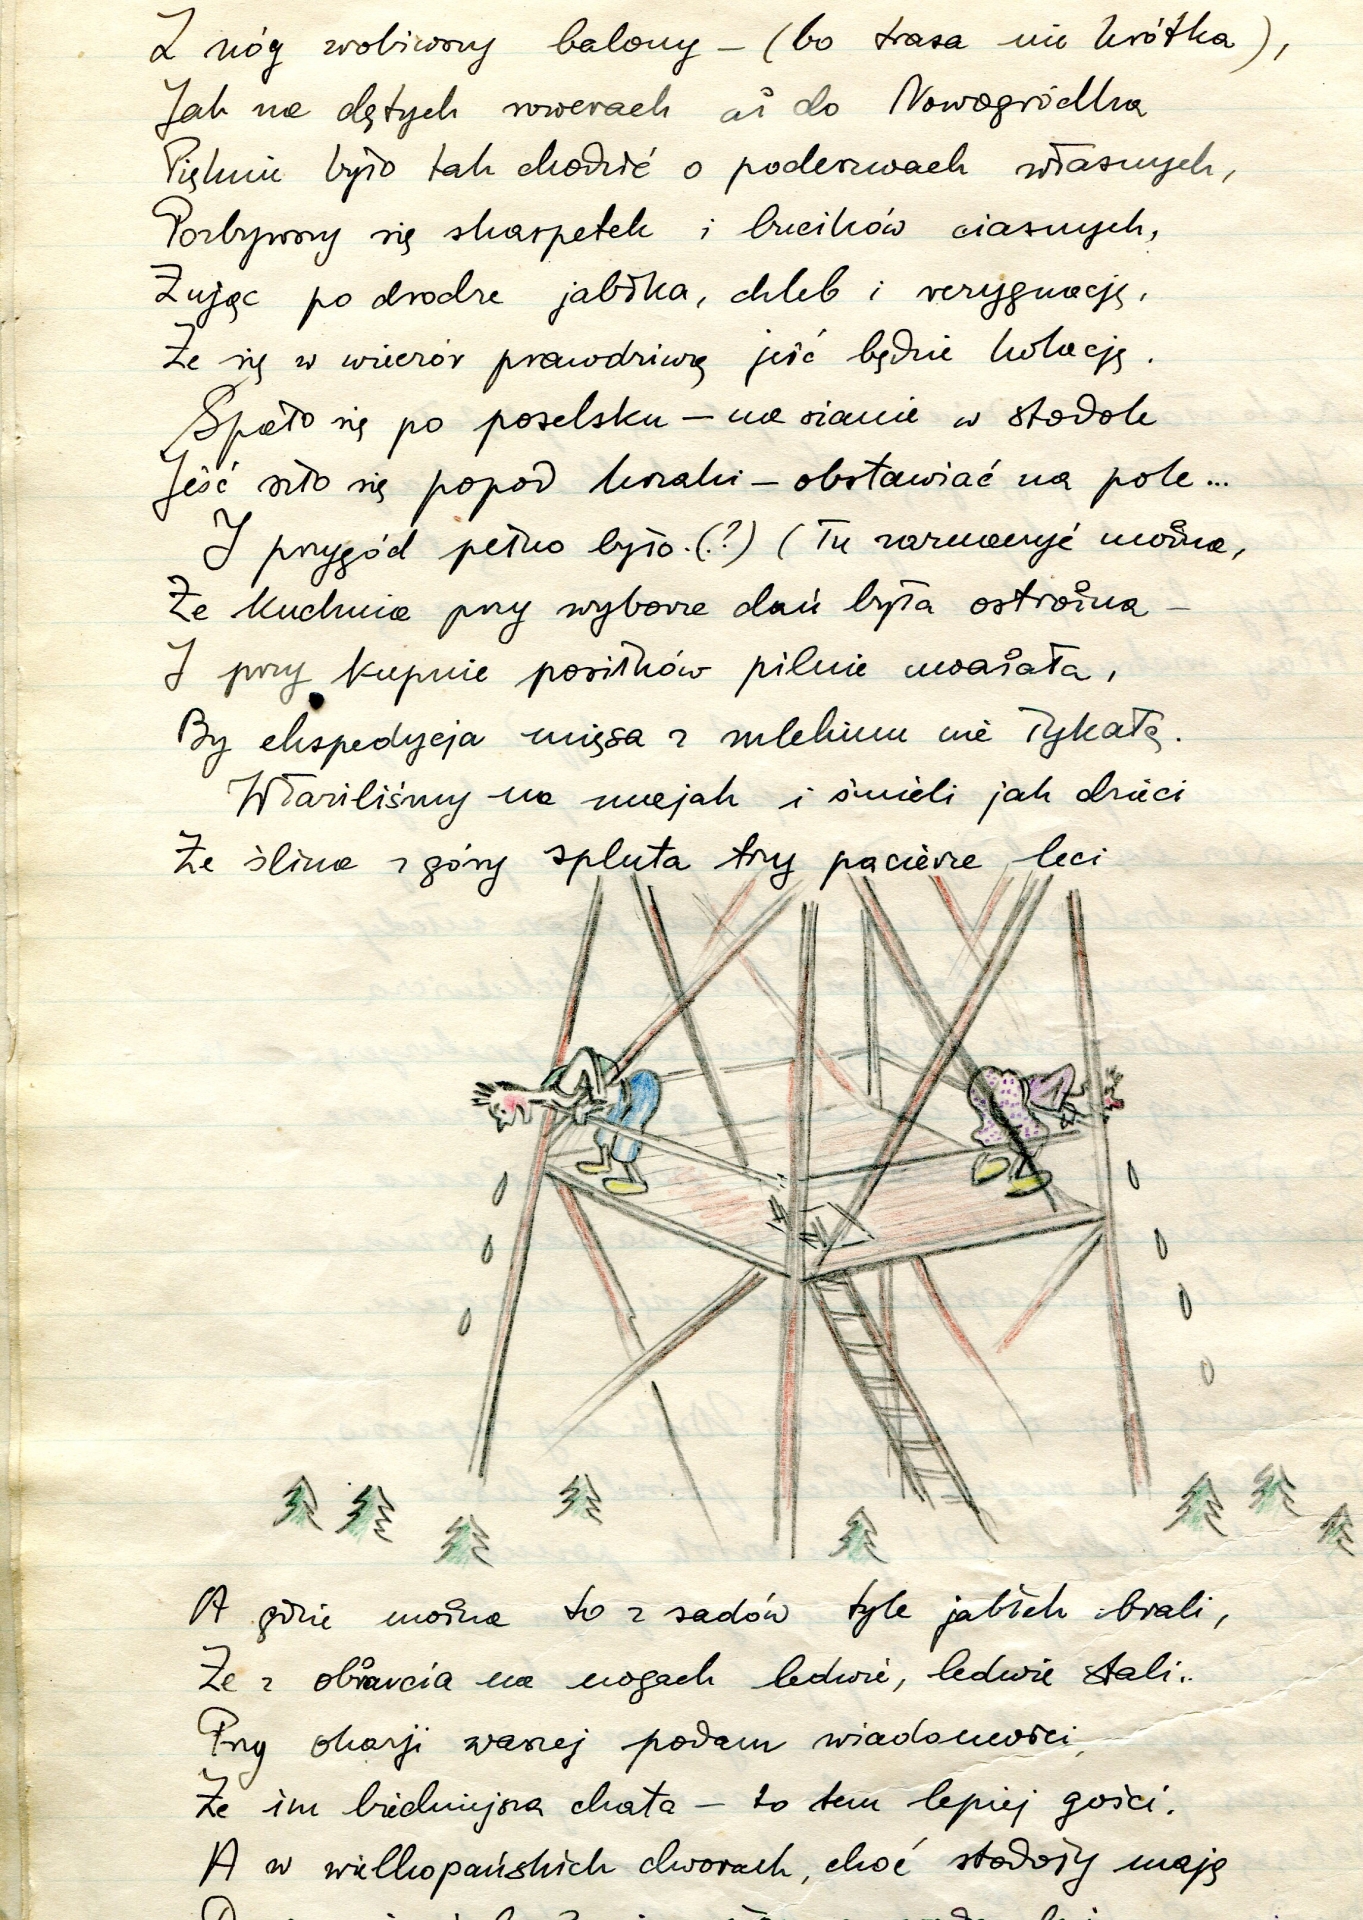 Z nóg zrobiwszy balony – (bo trasa nie krótka),
Jak na dętych rowerach aż do Nowogródka
Pięknie było tak chodzić o podeszwach własnych,
Pozbywszy się skarpetek i bucików ciasnych,
Żując po drodze jabłka, chleb i rezygnację,
Że się w wieczór prawdziwą jeść będzie kolację.
Spało się po poselsku – na sianie w stodole
Jeść szło się popod krzaki – obstawiać na pole...
I przygód pełno było.(?) (Tu zaznaczyć można,
Że kuchnia przy wyborze dań była ostrożna –
I przy kupnie posiłków pilnie uważała,
By ekspedycja mięsa z mlekiem nie łykała.
Właziliśmy na majak i śmieli jak dzieci
Że ślina z góry spluta trzy pacierze leci
A gdzie można to z sadów tyle jabłek brali,
Że z obżarcia na nogach ledwie, ledwie stali..
Przy okazji waszej podam wiadomości,
Że im biedniejsza chata – to tem lepiej gości.
A w wielkopańskich dworach, choć stodoły mają